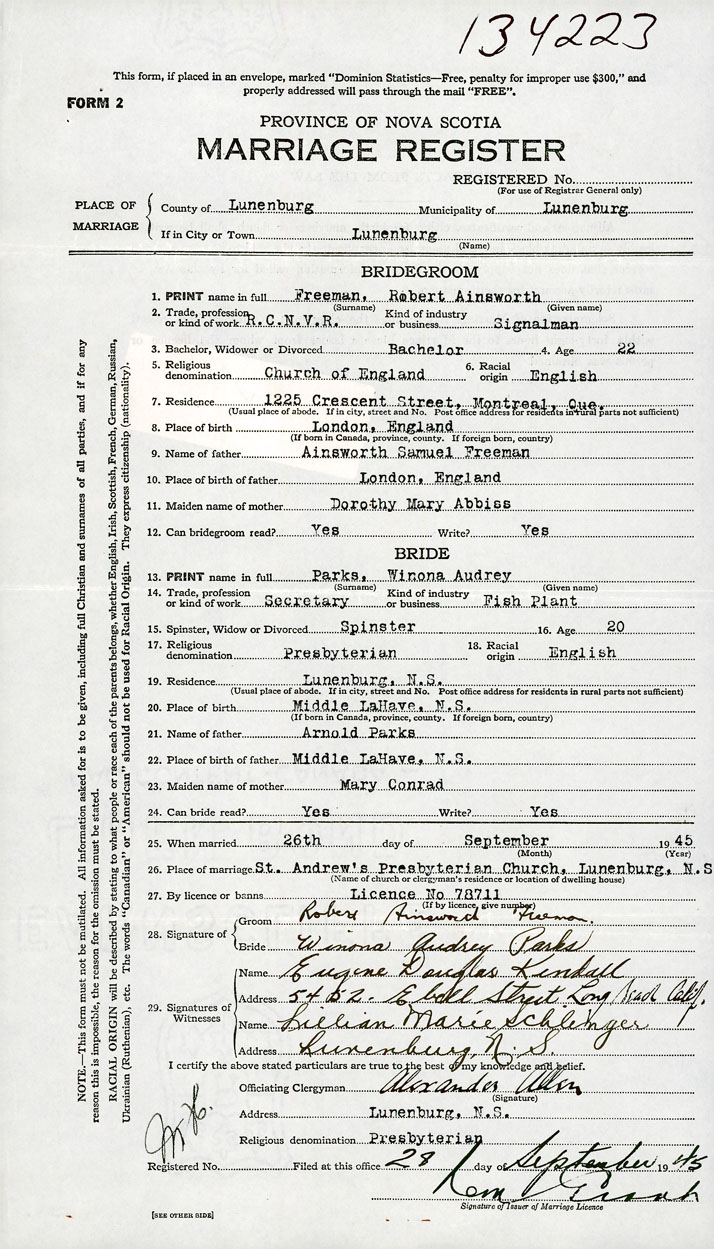 134223
This form, if placed in an envelope, marked "Dominion Statistics—Free, penalty for improper use $300," and
properly addressed will pass through the mail "FREE".
FORM 2
PROVINCE OF NOVA SCOTIA
MARRIAGE REGISTER
REGISTERED No.
(For use of Registrar General only)
PLACE OF MARRIAGE
County of Lunenburg Municipality of Lunenburg
If in City or Town Lunenburg
(Name)
BRIDEGROOM
1. PRINT name in full Freeman, Robert Ainsworth
(Surname) (Given name)
2. Trade, profession or kind of work R.C.N.V.R. Kind of industry or business Signalman
3. Bachelor, Widower or Divorced Bachelor 4. Age 22
5. Religious denomination Church of England 6. Racial origin English
7. Residence 1225 Crescent Street, Montreal, Que.
(Usual place of abode. If in city, street and No. Post office address for residents in rural parts not sufficient)
8. Place of birth London, England
(If born in Canada, province, county. If foreign born, country)
9. Name of father Ainsworth Samuel Freeman
10. Place of birth of father London, England
11. Maiden name of mother Dorothy Mary Abbiss
12. Can bridegroom read? Yes Write? Yes
BRIDE
13. PRINT name in full Parks, Winona Audrey
(Surname) (Given name)
14. Trade, profession or kind of work Secretary Kind of industry or business Fish Plant
15. Spinster, Widow or Divorced Spinster 16. Age 20
17. Religious denomination Presbyterian 18. Racial origin English
19. Residence Lunenburg, N.S.
(Usual place of abode. If in city, street and No. Post office address for residents in rural parts not sufficient)
20. Place of birth Middle LaHave, N.S.
(If born in Canada, province, county. If foreign born, country)
21. Name of father Arnold Parks
22. Place of birth of father Middle LaHave, N.S.
23. Maiden name of mother Mary Conrad
24. Can bride read? Yes Write? Yes
25. When married 26th day of September 19 45
(Month) (Year)
26. Place of marriage St. Andrew's Presbyterian Church, Lunenburg, N.S
(Name of church or clergyman's residence or location of dwelling house)
27. By licence or banns Licence No 78711
(If by licence, give number)
28. Signature of
Groom Robert Ainsworth Freeman.
Bride Winona Audrey Parks
29. Signatures of Witnesses
Name Eugene Douglas Kendall
Address 5452 - E bell Street Long Beach Calif.
Name Lillian Marie Schlinger
Address Lunenburg, N. S.
I certify the above stated particulars are true to the best of my knowledge and belief.
Officiating Clergyman Alexander Allen
(Signature)
Address Lunenburg, N.S.
Religious denomination Presbyterian
Registered No. Filed at this office 28 day of September 19 45
Signature of Issuer of Marriage Licence
[SEE OTHER SIDE]
NOTE.—This form must not be mutilated. All information asked for is to be given, including full Christian and surnames of all parties, and if for any
reason this is impossible, the reason for the omission must be stated.
RACIAL ORIGIN will be described by stating to what people or race each of the parents belongs, whether English, Irish, Scottish, French, German, Russian,
Ukrainian (Ruthenian), etc. The words "Canadian" or "American" should not be used for Racial Origin. They express citizenship (nationality).